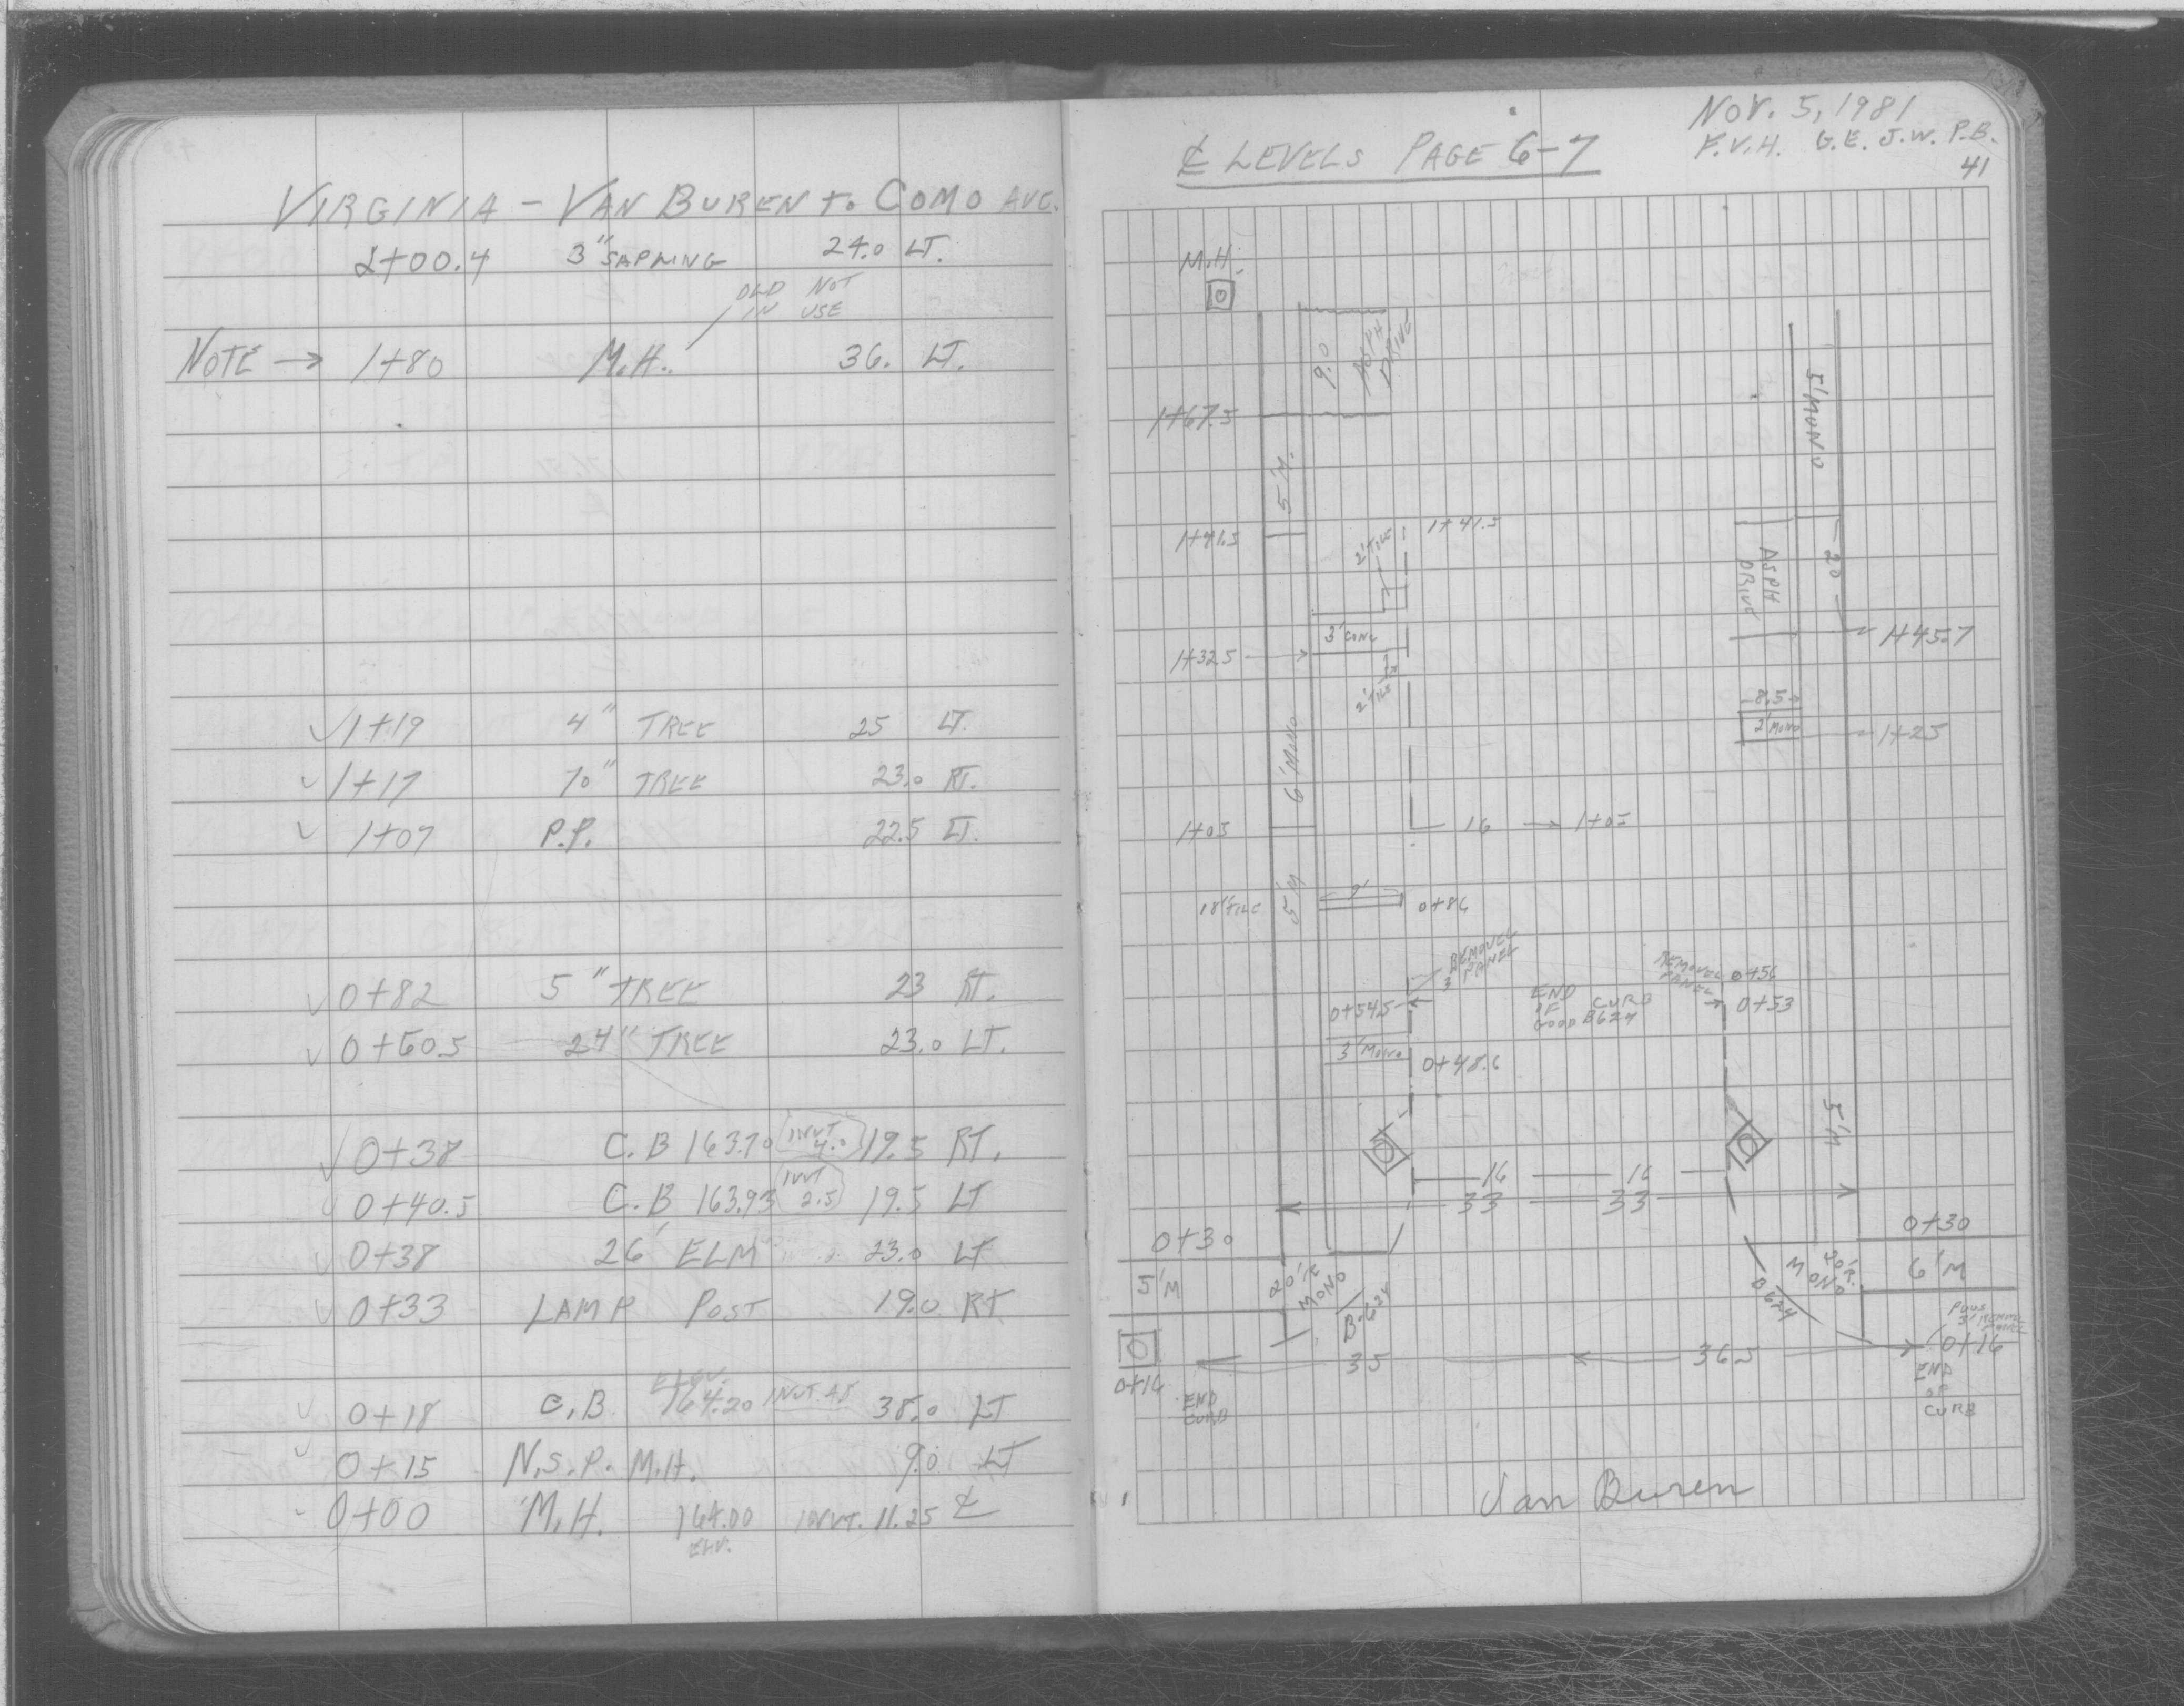 VIRGINIA - VAN BUREN to COMO AVE.
2+00.4 3" SAPLING 24.0 LT.
OLD NOT
IN USE
NOTE → 1+80 M.H. 36. LT.
✓ 1+19 4" TREE 25 LT.
✓ 1+17 10" TREE 23.0 RT.
✓ 1+07 P.P. 22.5 LT.
✓ 0+82 5" TREE 23 RT.
✓ 0+60.5 24" TREE 23.0 LT.
✓ 0+38 C.B 163.70 INVT 4.0 19.5 RT.
✓ 0+40.5 C.B 163.93 INVT 2.5 19.5 LT
✓ 0+38 26' ELM 23.0 LT
✓ 0+33 LAMP POST 19.0 RT
✓ 0+18 C.B. ELEV. 164.20 INVT. 38.0 LT
✓ 0+15 N.S.P. M.H. 9.0 LT
0+00 M.H. 164.00 INVT. 11.25 ℄
ELEV.
NOV. 5, 1981
℄ LEVELS PAGE 6-7 F.V.H. G.E. J.W. P.B.
41
M.H.
9.0 ASPH DRIVE
5' MONO
1+67.5
5' M.
1+41.5
2' TILE
1+41.5
ASPH DRIVE
20
3' CONC
1+45.7
1+32.5
2' TILE
8.5
2' MONO
1+25
6' MONO
1+05
16 → 1+05
5' M
18" TILE 9' 0+86
REMOVE
3' PANEL
REMOVE
PANEL
0+56
0+54.5
END
OF CURB
GOOD B624
0+53
3' MONO
0+48.6
5' M
16 16
33 33
0+30 0+30
5' M 20' R MONO B-624
B624 20' R. MONO 6' M
3' REMOVE
PANEL
35 36.5 0+16
0+16
END
CURB
END
OF
CURB
Van Buren